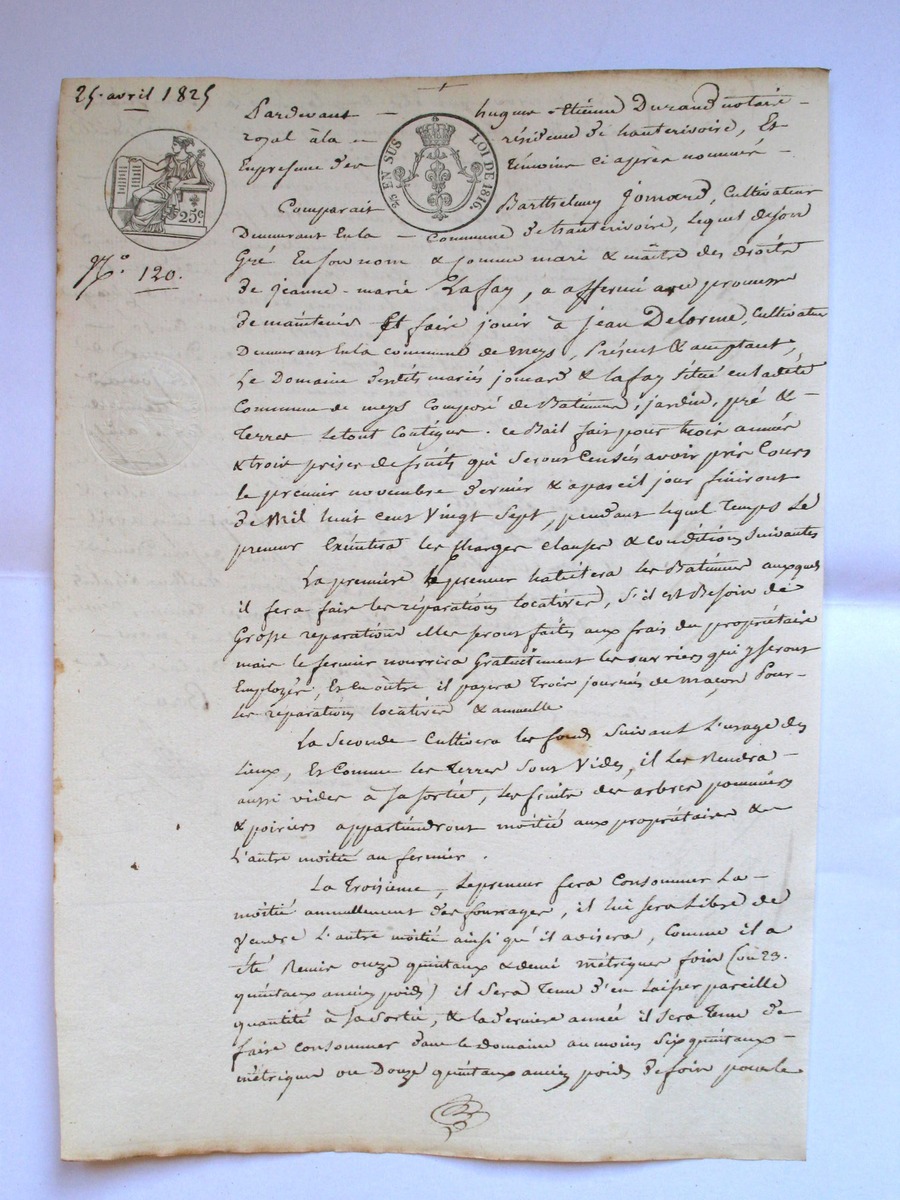 25. avril 1825
Pardevant — hugues Etienne Durand notaire –
royal à la — résidence de hauterivoire, Et
En presence des témoins ci après nommés –
25 EN SUS LOI DE 1816.
25c
Comparait Barthélemy jomard, Cultivateur
Demeurant En la — Commune de hauterivoire, lequel de son
Gré En son nom & comme mari & maître des droits
N.° 120.
de jeanne-marie Lafay, a affermé avec promesse
de maintenir Et faire jouir à jean Delorme, Cultivateur
Demeurant En la commune de meys, Présent & acceptant,
Le Domaine desdits mariés jomard & Lafay situé en ladite
Commune de meys Composé de Batimens, jardin, pré & –
Terres le tout Contigus. Ce Bail fait pour trois années
& trois prises de fruits qui seront Censés avoir pris Cours
le premier novembre dernier & a pareil jour finiront
de Mil huit cent Vingt Sept, pendant lequel Temps Le
preneur Exécutera les charges clauses & conditions suivantes
La première le preneur habitera les Batimens auxquels
il fera faire les réparations locatives, S'il est Besoin de
Grosse reparations elles seront faites aux frais du propriétaire
mais le fermier nourrira Gratuitement les ouvriers qui y seront
Employés, Et En outre il payera Trois journées de maçon Pour –
les réparations locatives & annuelle
La Seconde Cultivera les fonds Suivant L'usage des
Lieux, Et Comme les Terres Sont Vides, il les Rendra –
aussi vides à sa sortie, les fruits des arbres pommiers
& poiriers appartiendront moitié aux propriétaires & –
L'autre moitié au fermier.
La Troisieme, Le preneur fera Consommer La –
moitié annuellement des fourrages, il lui sera Libre de
Vendre L'autre moitié ainsi qu'il avisera, Comme il a
été Remis onze quintaux & demi métriques foin (ou 23.
quintaux ancien poids) il Sera Tenu d'en Laisser pareille
quantité à sa sortie, & la derniere année il sera Tenu de
faire consommer dans le domaine au moins Six quintaux –
métriques ou Douze quintaux ancien poids de foin pour le